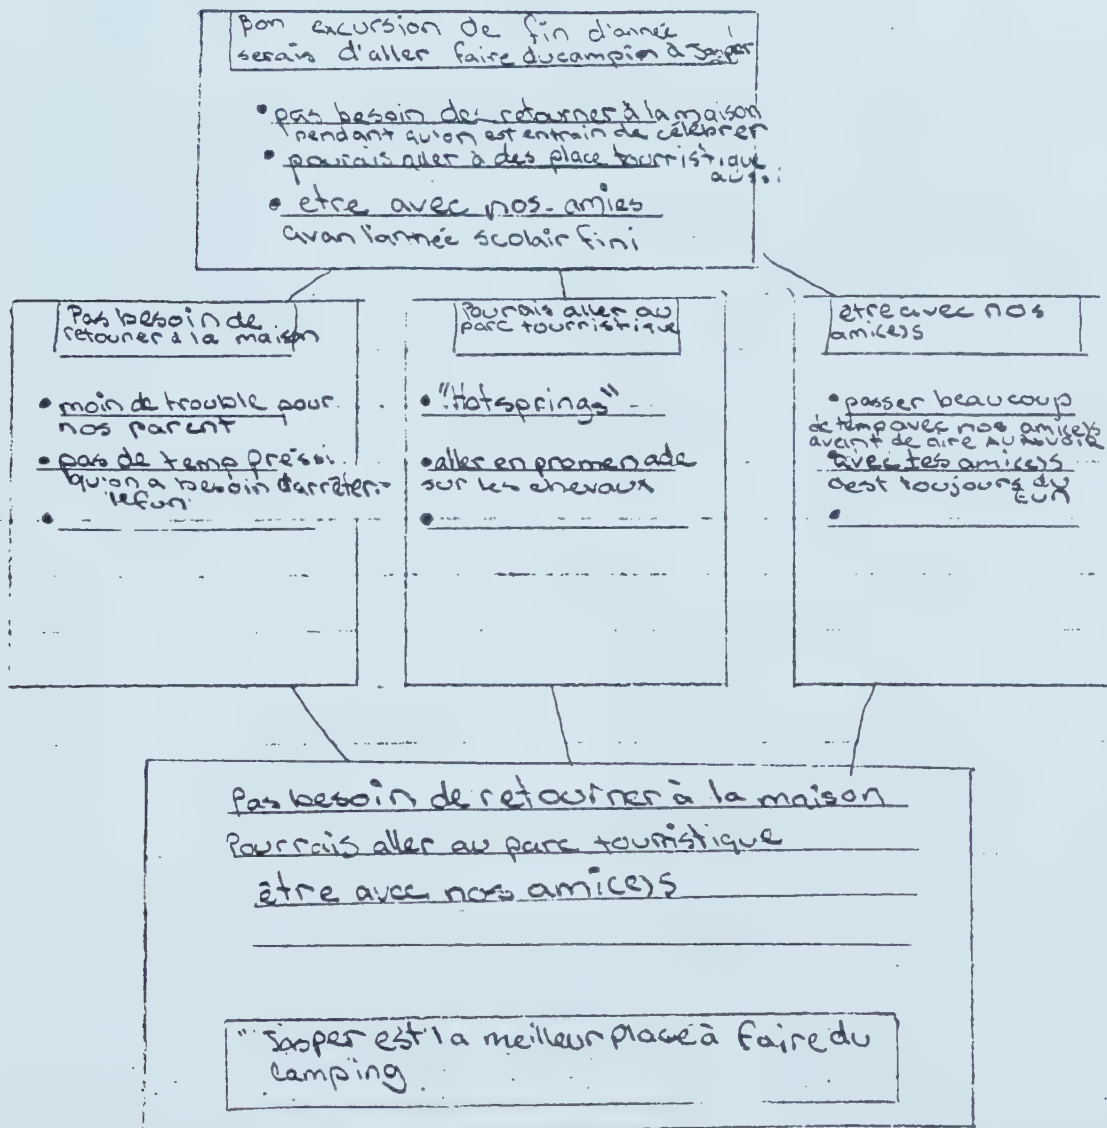 Bon excursion de fin d'année
serais d'aller faire du campin à Jasper
• pas besoin de retourner à la maison
pendant qu'on est entrain de célébrer
• pourais aller à des place tourristique
aussi
• etre avec nos amies
avan l'année scolair fini
Pas besoin de
retouner à la maison
• moin de trouble pour
nos parent
• pas de temp préssi
qu'on a besoin d'arrêter
le fun
•
Pourais aller au
parc tourristique
• "Hotsprings"
• aller en promenade
sur les chevaux
•
etre avec nos
ami(e)s
• passer beaucoup
de temp avec nos ami(e)s
avant de dire
• avec tes ami(e)s
c'est toujours du
fun
•
Pas besoin de retourner à la maison
Pourrais aller au parc touristique
être avec nos ami(e)s
"Jasper est la meilleur place à faire du
camping